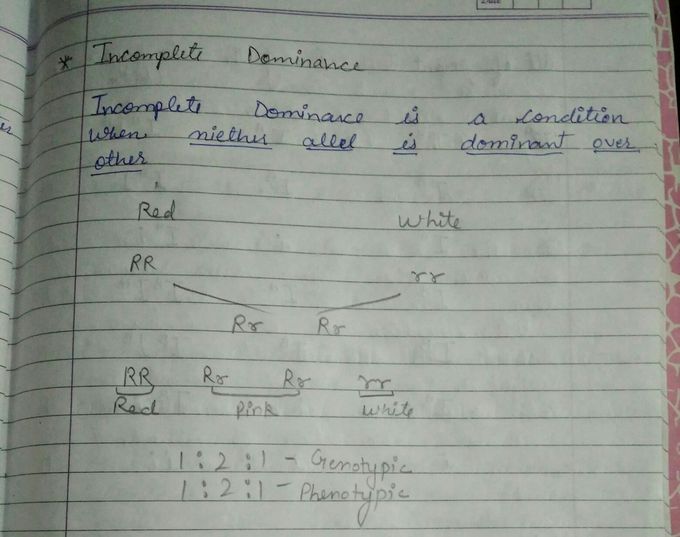 * Incomplete Dominance
Incomplete Dominance is a condition
when niether allel is dominant over
other
Red White
RR rr
Rr Rr
RR Rr Rr rr
Red Pink White
1 : 2 : 1 - Genotypic
1 : 2 : 1 - Phenotypic